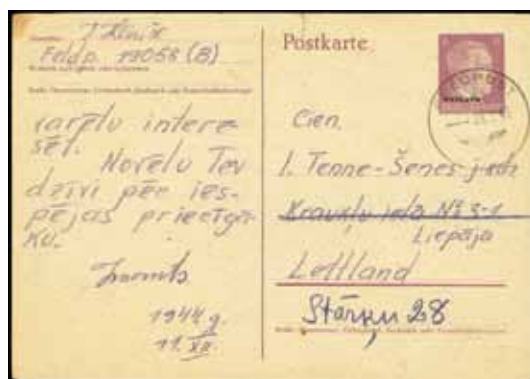 Feldp. 19058 (B)
varētu intere
sēt.
Novēlu Tev
dzīvi pēc ies-
pējas priecīgā-
ku.
1944 g.
11. XII.
Postkarte
Cien.
I. Tenne-Šenes j-kdz
Kraukļu ielā № 3-1
Liepāja
Lettland
Stārķu 28